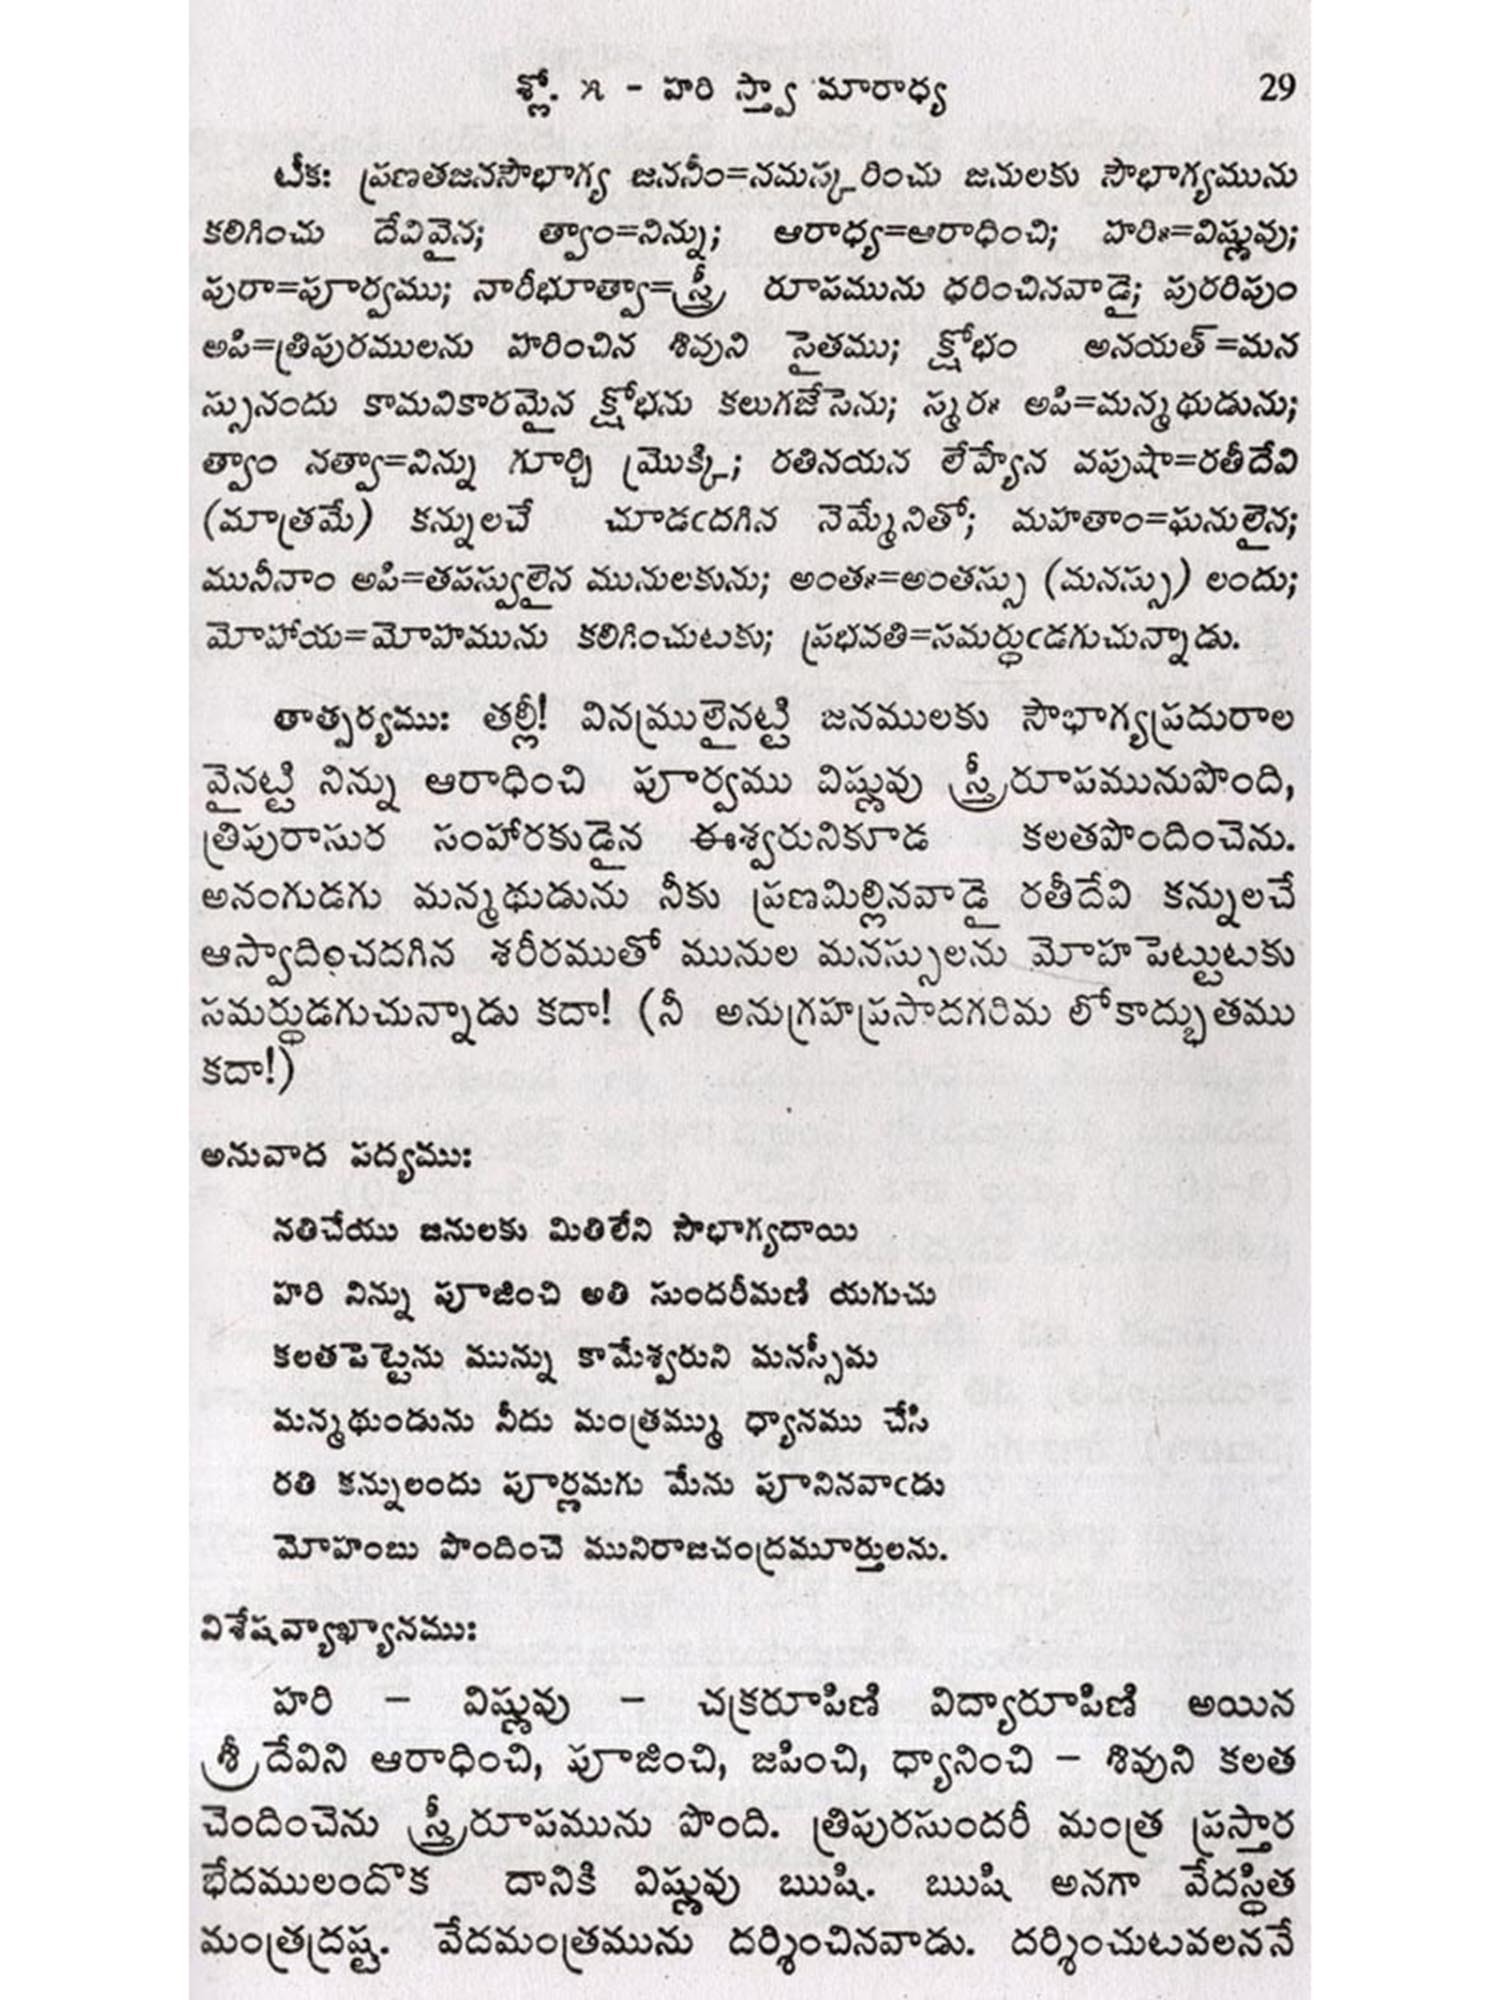 శ్లో. ౫ - హరి స్త్వా మారాధ్య 29
టీకః ప్రణతజనసౌభాగ్య జననీం=నమస్కరించు జనులకు సౌభాగ్యమును
కలిగించు దేవివైన; త్వాం=నిన్ను; ఆరాధ్య=ఆరాధించి; హరిః=విష్ణువు;
పురా=పూర్వము; నారీభూత్వా=స్త్రీ రూపమును ధరించినవాడై; పురరిపుం
అపి=త్రిపురములను హరించిన శివుని సైతము; క్షోభం అనయత్=మన
స్సునందు కామవికారమైన క్షోభను కలుగజేసెను; స్మరః అపి=మన్మథుడును;
త్వాం నత్వా=నిన్ను గూర్చి మ్రొక్కి; రతినయన లేహ్యేన వపుషా=రతీదేవి
(మాత్రమే) కన్నులచే చూడఁదగిన నెమ్మేనితో; మహతాం=ఘనులైన;
మునీనాం అపి=తపస్వులైన మునులకును; అంతః=అంతస్సు (మనస్సు) లందు;
మోహాయ=మోహమును కలిగించుటకు; ప్రభవతి=సమర్థుఁడగుచున్నాడు.
తాత్పర్యముః తల్లీ! వినమ్రులైనట్టి జనములకు సౌభాగ్యప్రదురాల
వైనట్టి నిన్ను ఆరాధించి పూర్వము విష్ణువు స్త్రీరూపమునుపొంది,
త్రిపురాసుర సంహారకుడైన ఈశ్వరునికూడ కలతపొందించెను.
అనంగుడగు మన్మథుడును నీకు ప్రణమిల్లినవాడై రతీదేవి కన్నులచే
ఆస్వాదించదగిన శరీరముతో మునుల మనస్సులను మోహపెట్టుటకు
సమర్థుడగుచున్నాడు కదా! (నీ అనుగ్రహప్రసాదగరిమ లోకాద్భుతము
కదా!)
అనువాద పద్యముః
నతిచేయు జనులకు మితిలేని సౌభాగ్యదాయి
హరి నిన్ను పూజించి అతి సుందరీమణి యగుచు
కలతపెట్టెను మున్ను కామేశ్వరుని మనస్సీమ
మన్మథుండును నీదు మంత్రమ్ము ధ్యానము చేసి
రతి కన్నులందు పూర్ణమగు మేను పూనినవాఁడు
మోహంబు పొందించె మునిరాజచంద్రమూర్తులను.
విశేషవ్యాఖ్యానముః
హరి – విష్ణువు – చక్రరూపిణి విద్యారూపిణి అయిన
శ్రీదేవిని ఆరాధించి, పూజించి, జపించి, ధ్యానించి – శివుని కలత
చెందించెను స్త్రీరూపమును పొంది. త్రిపురసుందరీ మంత్ర ప్రస్తార
భేదములందొక దానికి విష్ణువు ఋషి. ఋషి అనగా వేదస్థిత
మంత్రద్రష్ట. వేదమంత్రమును దర్శించినవాడు. దర్శించుటవలననే